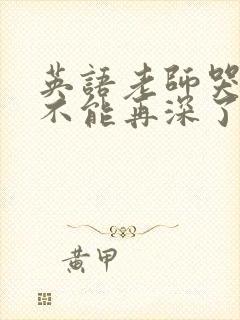 英語老師哭
不能再深了
黃甲